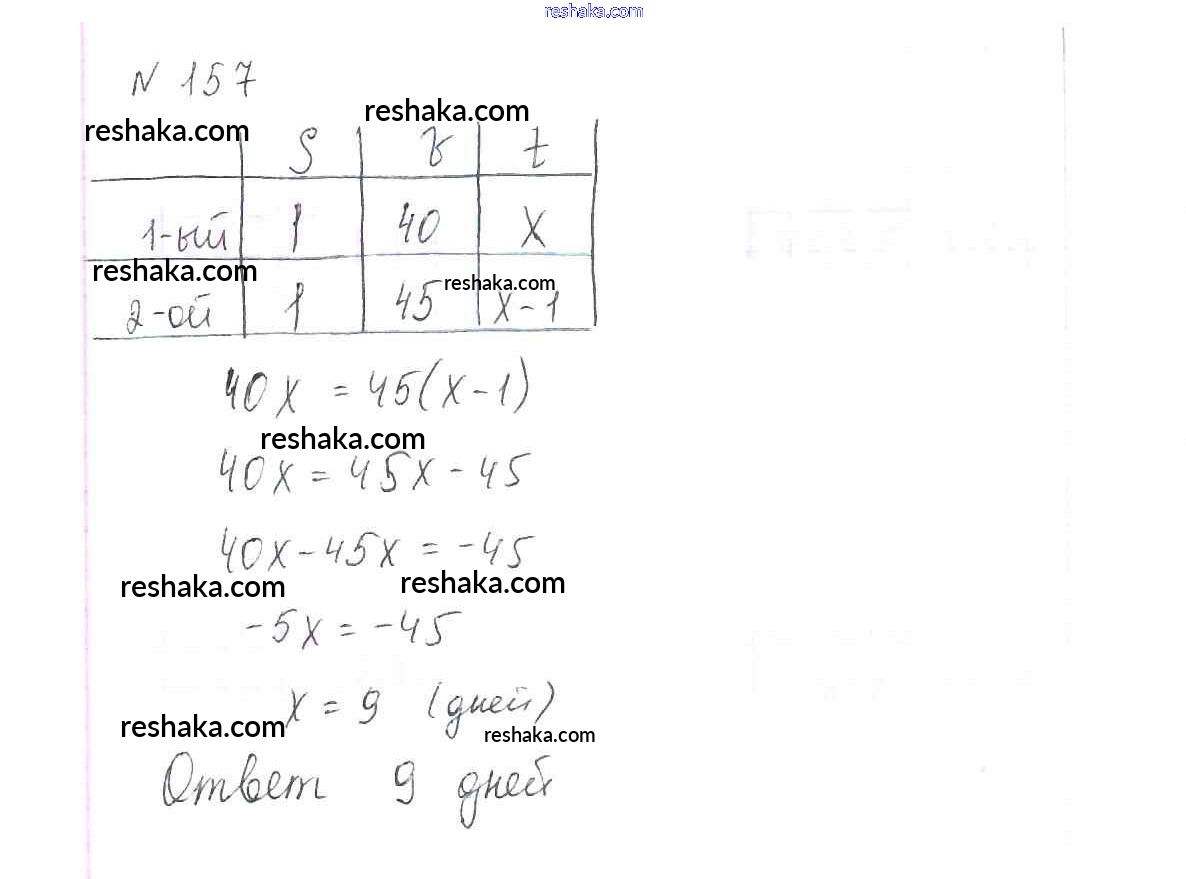 reshaka.com
N 157
reshaka.com
reshaka.com
S v t
1-ый 1 40 x
reshaka.com
reshaka.com
2-ой 1 45 x-1
40x = 45(x-1)
reshaka.com
40x = 45x - 45
40x - 45x = -45
reshaka.com reshaka.com
-5x = -45
x = 9 (дней)
reshaka.com
reshaka.com
Ответ 9 дней